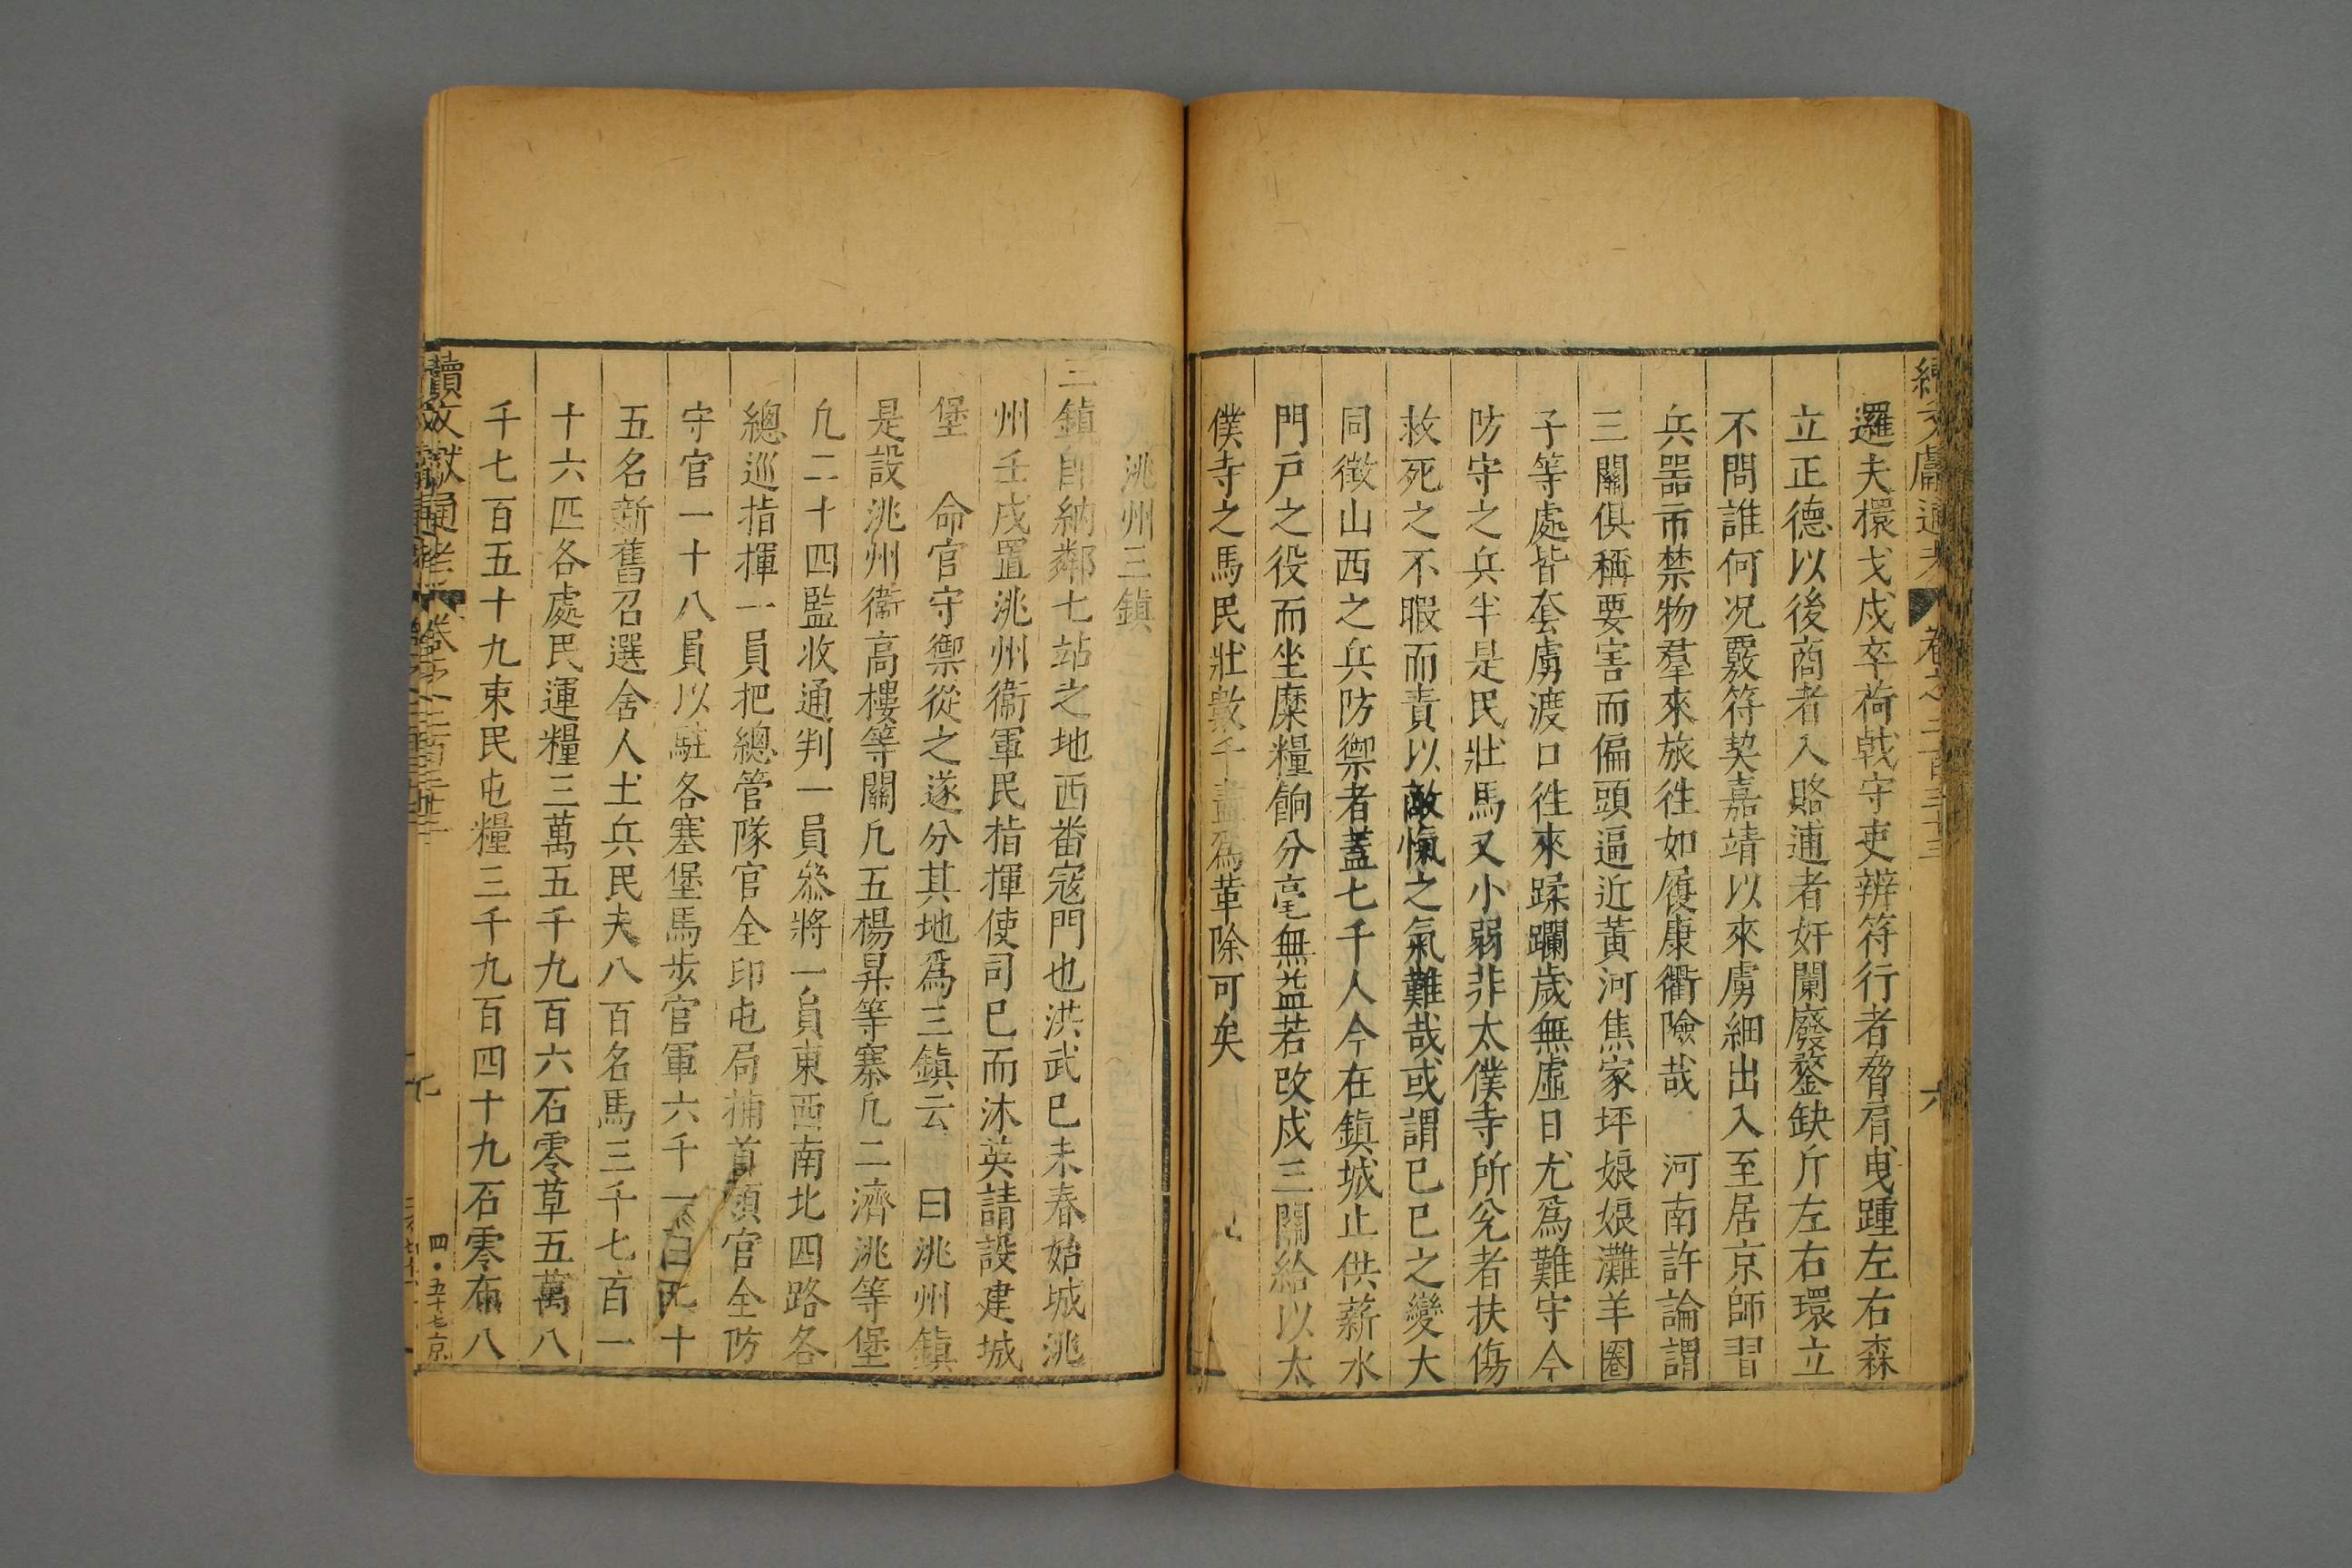 邏夫櫌戈戍卒荷戟守吏辨符行者脅肩曳踵左右森
立正德以後商者入賂逋者奸闌廢鍪缺斤左右環立
不問誰何况覈符契嘉靖以來虜細出入至居京師習
兵器市禁物羣來旅徃如履康衢險哉 河南許論謂
三關俱稱要害而偏頭逼近黃河焦家坪娘娘灘羊圈
子等處皆套虜渡口徃來蹂躪歲無虛日尤爲難守今
防守之兵半是民壯馬又小弱非太僕寺所兊者扶傷
救死之不暇而責以敵愾之氣難哉或謂巳巳之變大
同徵山西之兵防禦者蓋七千人今在鎮城止供薪水
門戸之役而坐糜糧餉分毫無益若改戍三關給以太
僕寺之馬民壯數千盡爲革除可矣
洮州三鎮
三鎮卽納鄰七站之地西畨寇門也洪武巳未春始城洮
州壬戌置洮州衞軍民指揮使司巳而沐英請設建城
堡 命官守禦從之遂分其地爲三鎮云 曰洮州鎮
是設洮州衞高樓等關凢五楊昇等寨凢二濟洮等堡
凢二十四監收通判一員叅將一員東西南北四路各
總巡指揮一員把總管隊官全印屯局捕首領官全防
守官一十八員以駐各塞堡馬步官軍六千一百九十
五名新舊召選舍人土兵民夫八百名馬三千七百一
十六匹各處民運糧三萬五千九百六石零草五萬八
千七百五十九束民屯糧三千九百四十九石零布八
續文獻通考
四·五十七京